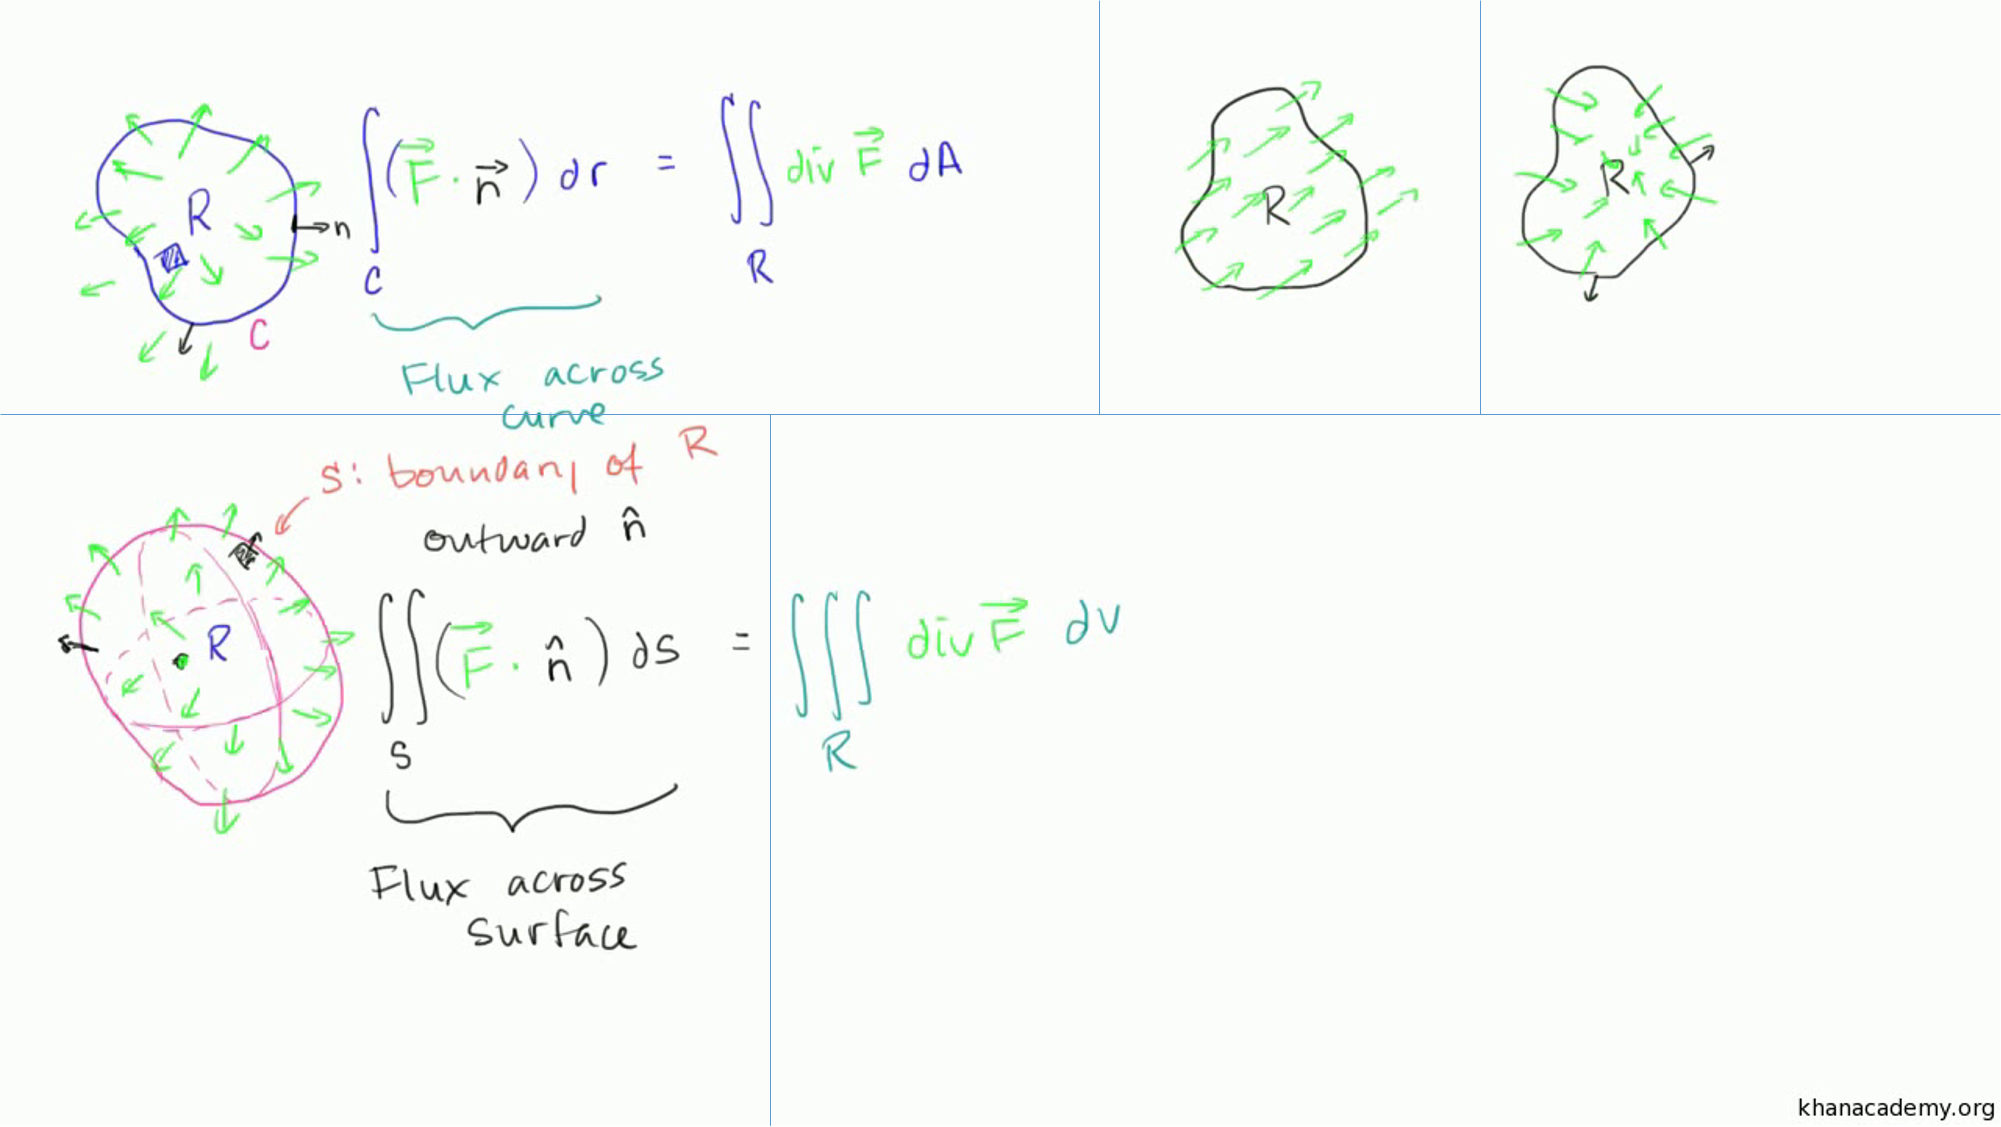 R
n
C
∫ (F⃗ · n⃗) dr = ∬ div F⃗ dA
C
R
Flux across
curve
R
R
S: boundary of R
outward n̂
R
∬ (F⃗ · n̂) ds = ∭ div F⃗ dv
S
R
Flux across
surface
khanacademy.org